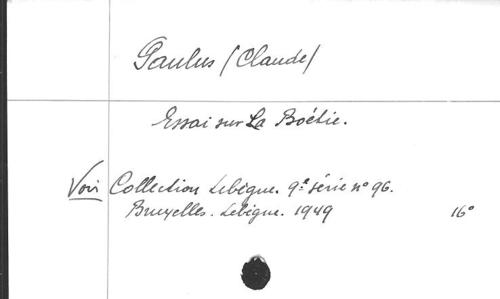 Paulus (Claude)
Essai sur La Boétie.
Voir Collection Lebègue. 9e série n° 96.
Bruxelles. Lebègue. 1949 16°